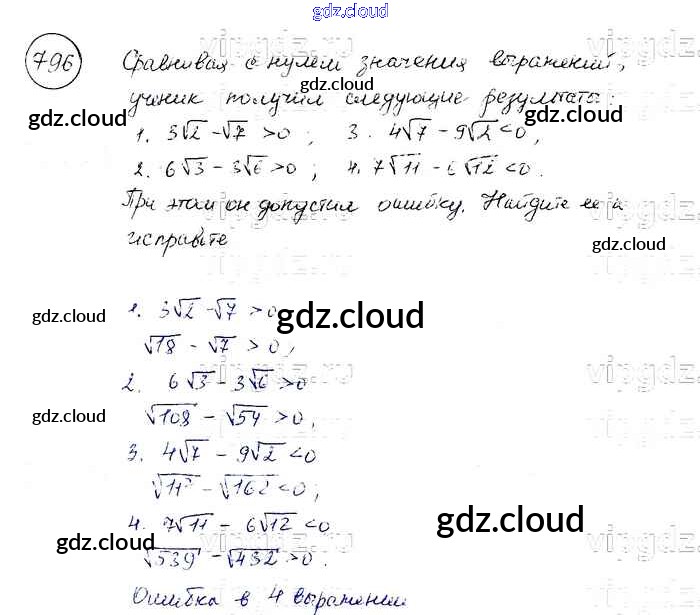 gdz.cloud
796 Сравнивая с нулём значения выражений,
gdz.cloud
ученик получил следующие результаты:
gdz.cloud gdz.cloud
1. 3√2 - √7 > 0; 3. 4√7 - 9√2 < 0,
2. 6√3 - 3√6 > 0; 4. 7√11 - 6√12 < 0.
При этом он допустил ошибку. Найдите её и
исправьте
gdz.cloud
1. 3√2 - √7 > 0
gdz.cloud gdz.cloud
√18 - √7 > 0,
2. 6√3 - 3√6 > 0
gdz.cloud
√108 - √54 > 0,
3. 4√7 - 9√2 < 0
√112 - √162 < 0;
4. 7√11 - 6√12 < 0
gdz.cloud gdz.cloud
√539 - √432 > 0.
Ошибка в 4 выражении